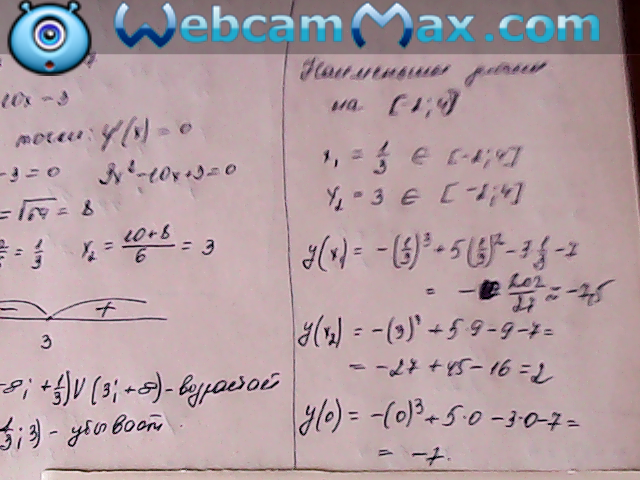 WebcamMax.com
10x-3
точки: y'(x) = 0
-3=0 3x²-10x+3=0
=√64 = 8
= 1/3 x₂ = (10+8)/6 = 3
- +
3
-∞; +1/3) U (3; +∞) - возрастает
1/3; 3) - убывает.
Наименьшее
на [-1; 4]
x₁ = 1/3 ∈ [-1; 4]
x₂ = 3 ∈ [-1; 4]
y(x₁) = -(1/3)³ + 5(1/3)² - 3 1/3 - 7
= - 202/27 ≈ -7,5
y(x₂) = -(3)³ + 5·9 - 9 - 7 =
= -27 + 45 - 16 = 2
y(0) = -(0)³ + 5·0 - 3·0 - 7 =
= -7.